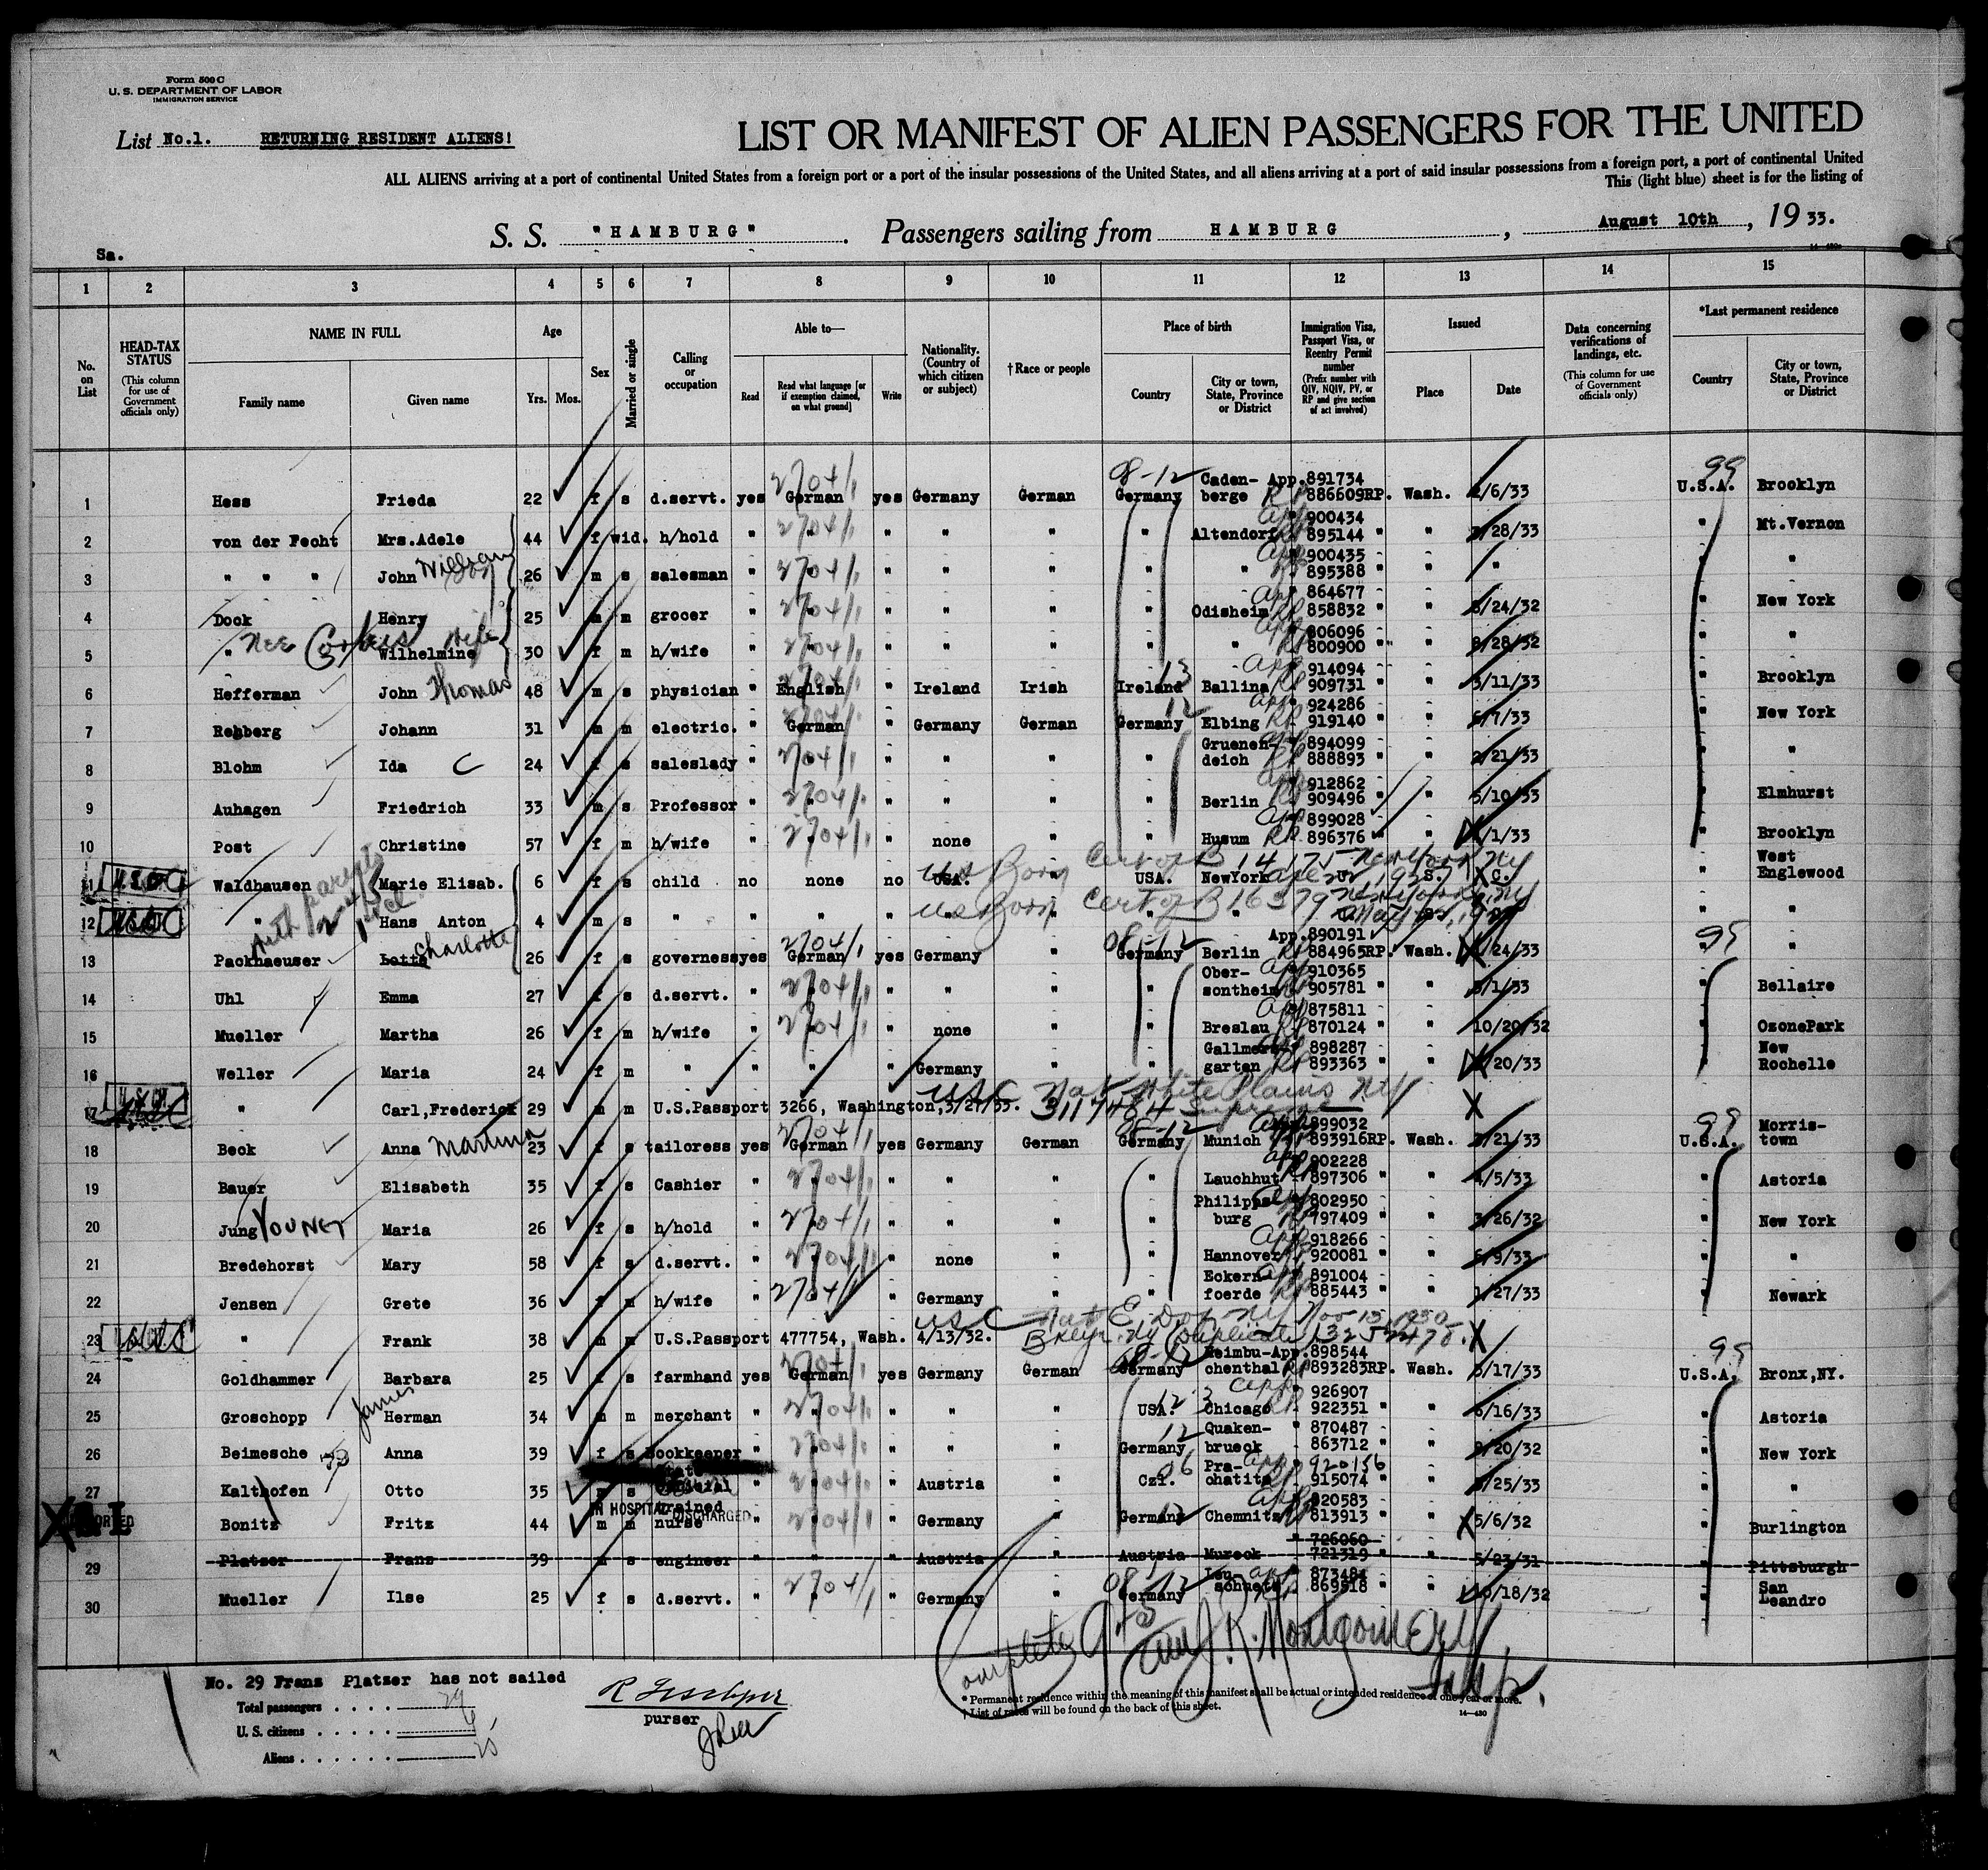 Form 500 C
U. S. DEPARTMENT OF LABOR
IMMIGRATION SERVICE
List No.1. RETURNING RESIDENT ALIENS!
LIST OR MANIFEST OF ALIEN PASSENGERS FOR THE UNITED
ALL ALIENS arriving at a port of continental United States from a foreign port or a port of the insular possessions of the United States, and all aliens arriving at a port of said insular possessions from a foreign port, a port of continental United
This (light blue) sheet is for the listing of
S. S. "HAMBURG". Passengers sailing from HAMBURG, August 10th, 19 33.
Sa.
1 2 3 4 5 6 7 8 9 10 11 12 13 14 15
No. on List
HEAD-TAX STATUS (This column for use of Government officials only)
NAME IN FULL
Family name Given name
Age
Yrs. Mos.
Sex
Married or single
Calling or occupation
Able to—
Read Read what language [or if exemption claimed, on what ground] Write
Nationality. (Country of which citizen or subject)
†Race or people
Place of birth
Country City or town, State, Province or District
Immigration Visa, Passport Visa, or Reentry Permit number (Prefix number with QIV, NQIV, PV, or RP and give section of act involved)
Issued
Place Date
Data concerning verifications of landings, etc. (This column for use of Government officials only)
*Last permanent residence
Country City or town, State, Province or District
1 Hess Frieda 22 f s d.servt. yes German yes Germany German Germany Caden-berge App.891734 886609RP. Wash. /6/33 U.S.A. Brooklyn
2 von der Fecht Mrs.Adele 44 f wid. h/hold " " " " " " Altendorf 900434 895144 " " /28/33 " Mt.Vernon
3 " " " John William 26 m s salesman " " " " " " " 900435 895388 " " " " "
4 Dock Henry 25 m m grocer " " " " " " Odisheim 864677 858832 " " /24/32 " New York
5 " Nee Wilhelmine wife 30 f m h/wife " " " " " " " 806096 800900 " " /28/32 " "
6 Hefferman John Thomas 48 m s physician " English " Ireland Irish Ireland Ballina 914094 909731 " " 3/11/33 " Brooklyn
7 Rehberg Johann 31 m m electric. " German " Germany German Germany Elbing 924286 919140 " " /7/33 " New York
8 Blohm Ida C 24 f s saleslady " " " " " " Gruenen-deich 894099 888893 " " 2/21/33 " "
9 Auhagen Friedrich 33 m s Professor " " " " " " Berlin 912862 909496 " 5/10/33 " Elmhurst
10 Post Christine 57 f m h/wife " " " none " " Husum 899028 896376 " " /1/33 " Brooklyn
11 Waldhausen Marie Elisab. 6 f s child no none no USA. " USA. NewYork U. S. C. West Englewood
US Born Cert of B 14175 New York NY
12 " Hans Anton 4 m s " " " " " " " " " "
US Born Cert of B 16379 New York NY
13 Packhaeuser Lotte Charlotte 26 f s governess yes German yes Germany " Germany Berlin App.890191 884965RP. Wash. /24/33 " "
14 Uhl Emma 27 f s d.servt. " " " " " " Ober-sontheim 910365 905781 " " /1/33 " Bellaire
15 Mueller Martha 26 f m h/wife " " " none " " Breslau 875811 870124 " " 10/20/32 " OzonePark
16 Weller Maria 24 f m " " " " Germany " " garten 898287 893363 " " /20/33 " New Rochelle
17 " Carl,Frederick 29 m m U.S.Passport 3266, Washington,3/27/33.
USC Nat White Plains NY
18 Beck Anna Martina 23 f s tailoress yes German yes Germany German Germany Munich 899032 893916RP. Wash. /21/33 U.S.A. Morris-town
19 Bauer Elisabeth 35 f s Cashier " " " " " " Lauchhut 902228 897306 " " 4/5/33 " Astoria
20 Jung YOUNG Maria 26 f s h/hold " " " " " " Philipps-burg 802950 797409 " " /26/32 " New York
21 Bredehorst Mary 58 f s d.servt. " " " none " " Hannover 918266 920081 " " /9/33 " "
22 Jensen Grete 36 f m h/wife " " " Germany " " Eckern-foerde 891004 885443 " " 1/27/33 " Newark
23 " Frank 38 m m U.S.Passport 477754, Wash. 4/13/32.
USC
24 Goldhammer Barbara 25 f s farmhand yes German yes Germany German Germany Heimbu-chenthal App.898544 893283RP. Wash. /17/33 U.S.A. Bronx,NY.
25 Groschopp James Herman 34 m m merchant " " " " " USA. Chicago 926907 922351 " " 6/16/33 " Astoria
26 Beimesche Anna 39 f s Bookkeeper " " " " " Germany Quaken-brueck 870487 863712 " " /20/32 " New York
27 Kalthofen Otto 35 m s official " " " Austria " Czl. Pra-chatitz 920156 915074 " " /25/33 " "
IN HOSPITAL DISCHARGED
Bonitz Fritz 44 m m trained nurse " " " Germany " Germany Chemnitz 820583 813913 " " 5/6/32 " Burlington
29 Platzer Frans 39 m s engineer " " " Austria " Austria Mureck 726060 721319 " " 5/23/31 " Pittsburgh
30 Mueller Ilse 25 f s d.servt. " " " Germany " Germany 873484 869518 " " 10/18/32 " San Leandro
No. 29 Frans Platzer has not sailed
Total passengers . . . . 29
U. S. citizens . . . . . 4
Aliens . . . . . . 25
purser
Complete
J. R. Montgomery
Insp.
* Permanent residence within the meaning of this manifest shall be actual or intended residence of one year or more.
† List of races will be found on the back of this sheet.
14—430